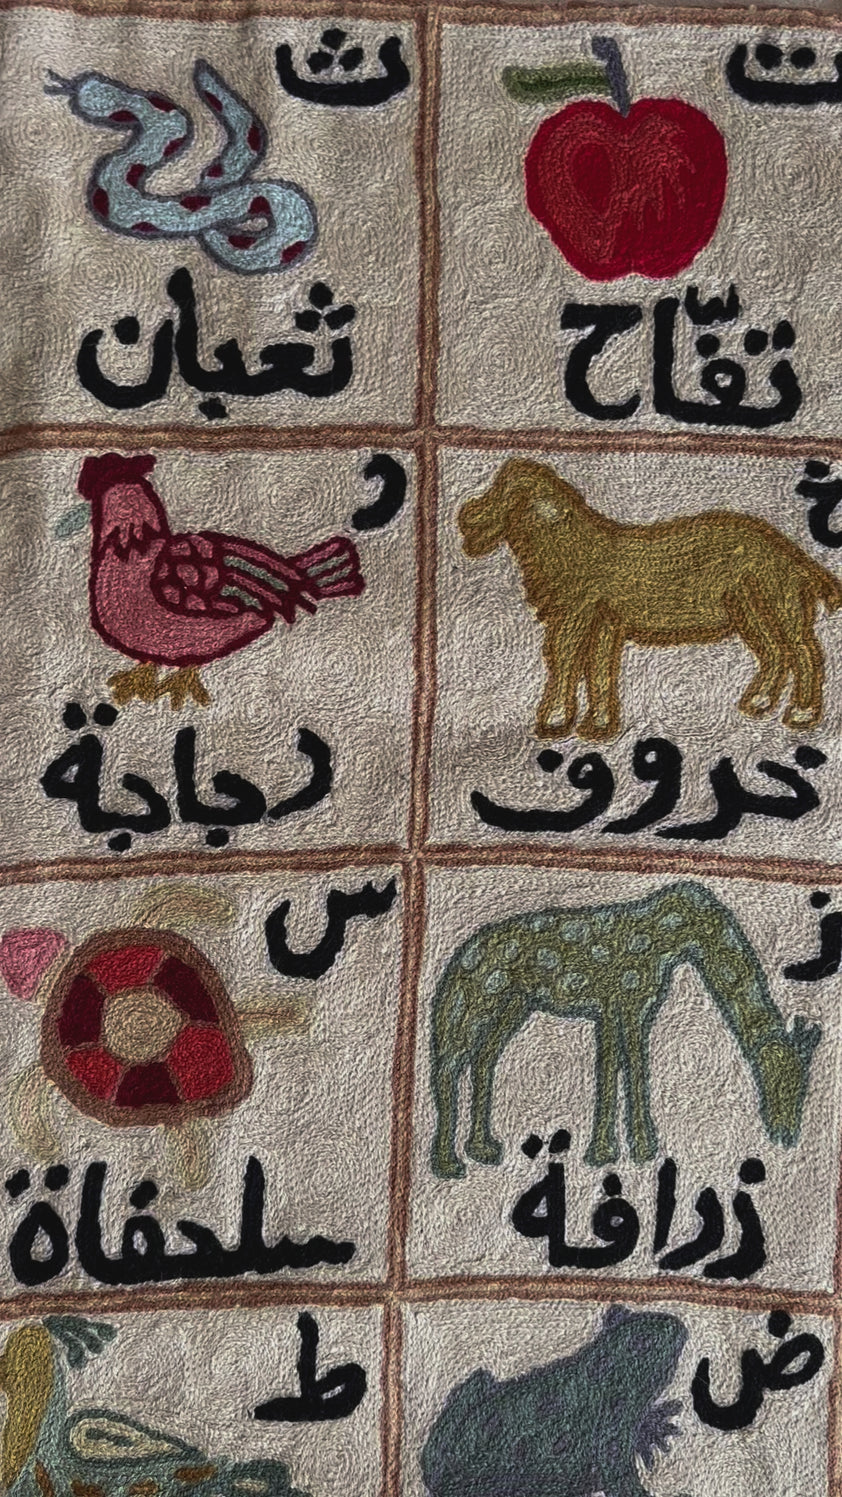 ت
تفّاح
ث
ثعبان
خ
خروف
د
دجاجة
ز
زرافة
س
سلحفاة
ض
ط